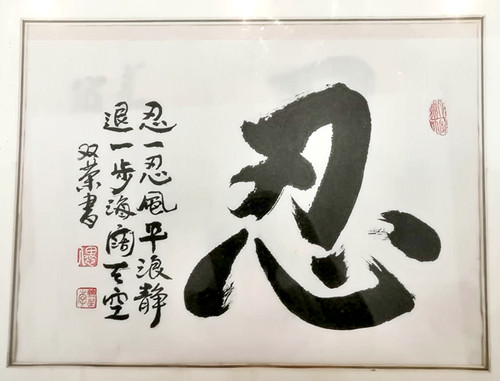 忍
忍一忍风平浪静
退一步海阔天空
双荣书